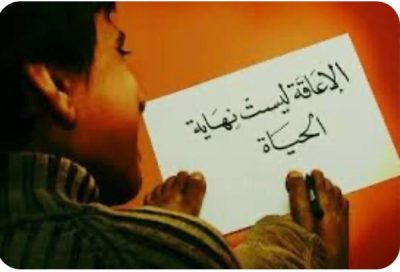 الإعَاقَة ليسَتْ نِهَاية
الحَيَاة